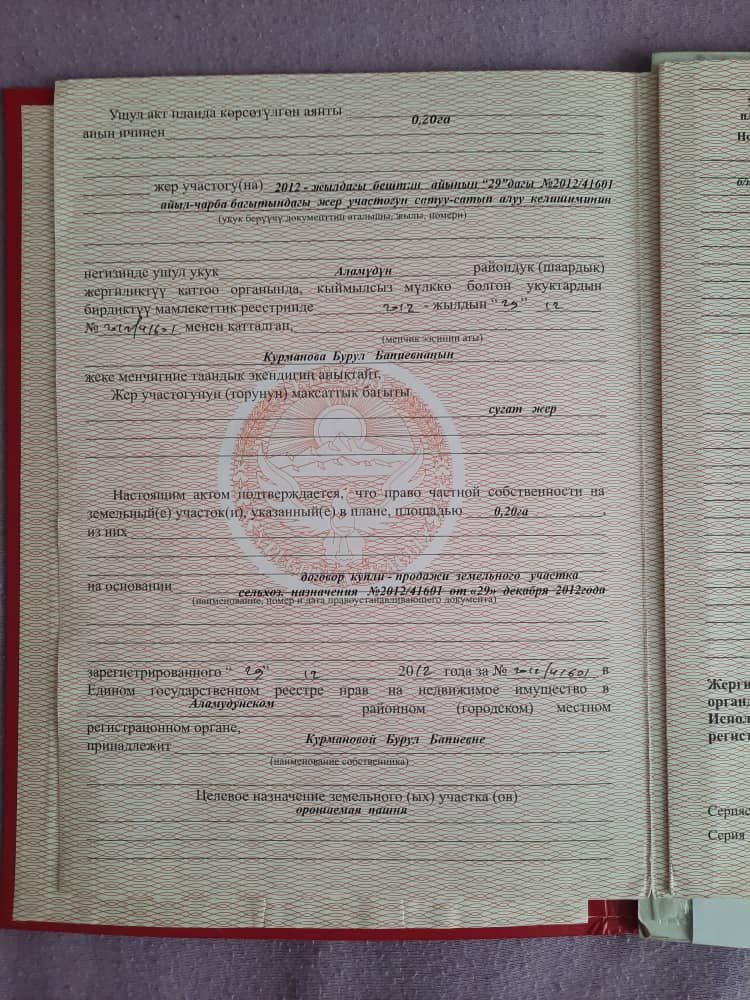 Ушул акт планда көрсөтүлгөн аянты 0,20га
анын ичинен
жер участогу(на) 2012 - жылдагы бештин айынын “29”дагы №2012/41601
айыл-чарба багытындагы жер участогун сатуу-сатып алуу келишиминин
(укук берүүчү документтин аталышы, жылы, номери)
негизинде ушул укук Аламүдүн райондук (шаардык)
жергиликтүү каттоо органында, кыймылсыз мүлккө болгон укуктардын
бирдиктүү мамлекеттик реестринде 2012 - жылдын “29” 12
№ 2012/41601 менен катталган,
(менчик ээсинин аты)
Курманова Бурул Бапиевнанын
жеке менчигине таандык экендигин аныктайт.
Жер участогунун (торунун) максаттык багыты
сугат жер
Настоящим актом подтверждается, что право частной собственности на
земельный(е) участок(и), указанный(е) в плане, площадью 0,20га,
из них
на основании договор купли - продажи земельного участка
сельхоз. назначения №2012/41601 от «29» декабря 2012года
(наименование, номер и дата правоустанавливающего документа)
зарегистрированного “29” 12 2012 года за № 2012/41601 в
Едином государственном реестре прав на недвижимое имущество в
Аламудунском районном (городском) местном
регистрационом органе,
принадлежит Курмановой Бурул Бапиевне
(наименование собственника)
Целевое назначение земельного (ых) участка (ов)
орошаемая пашня
Жерги
органд
Испол
регист
Серияс
Серия